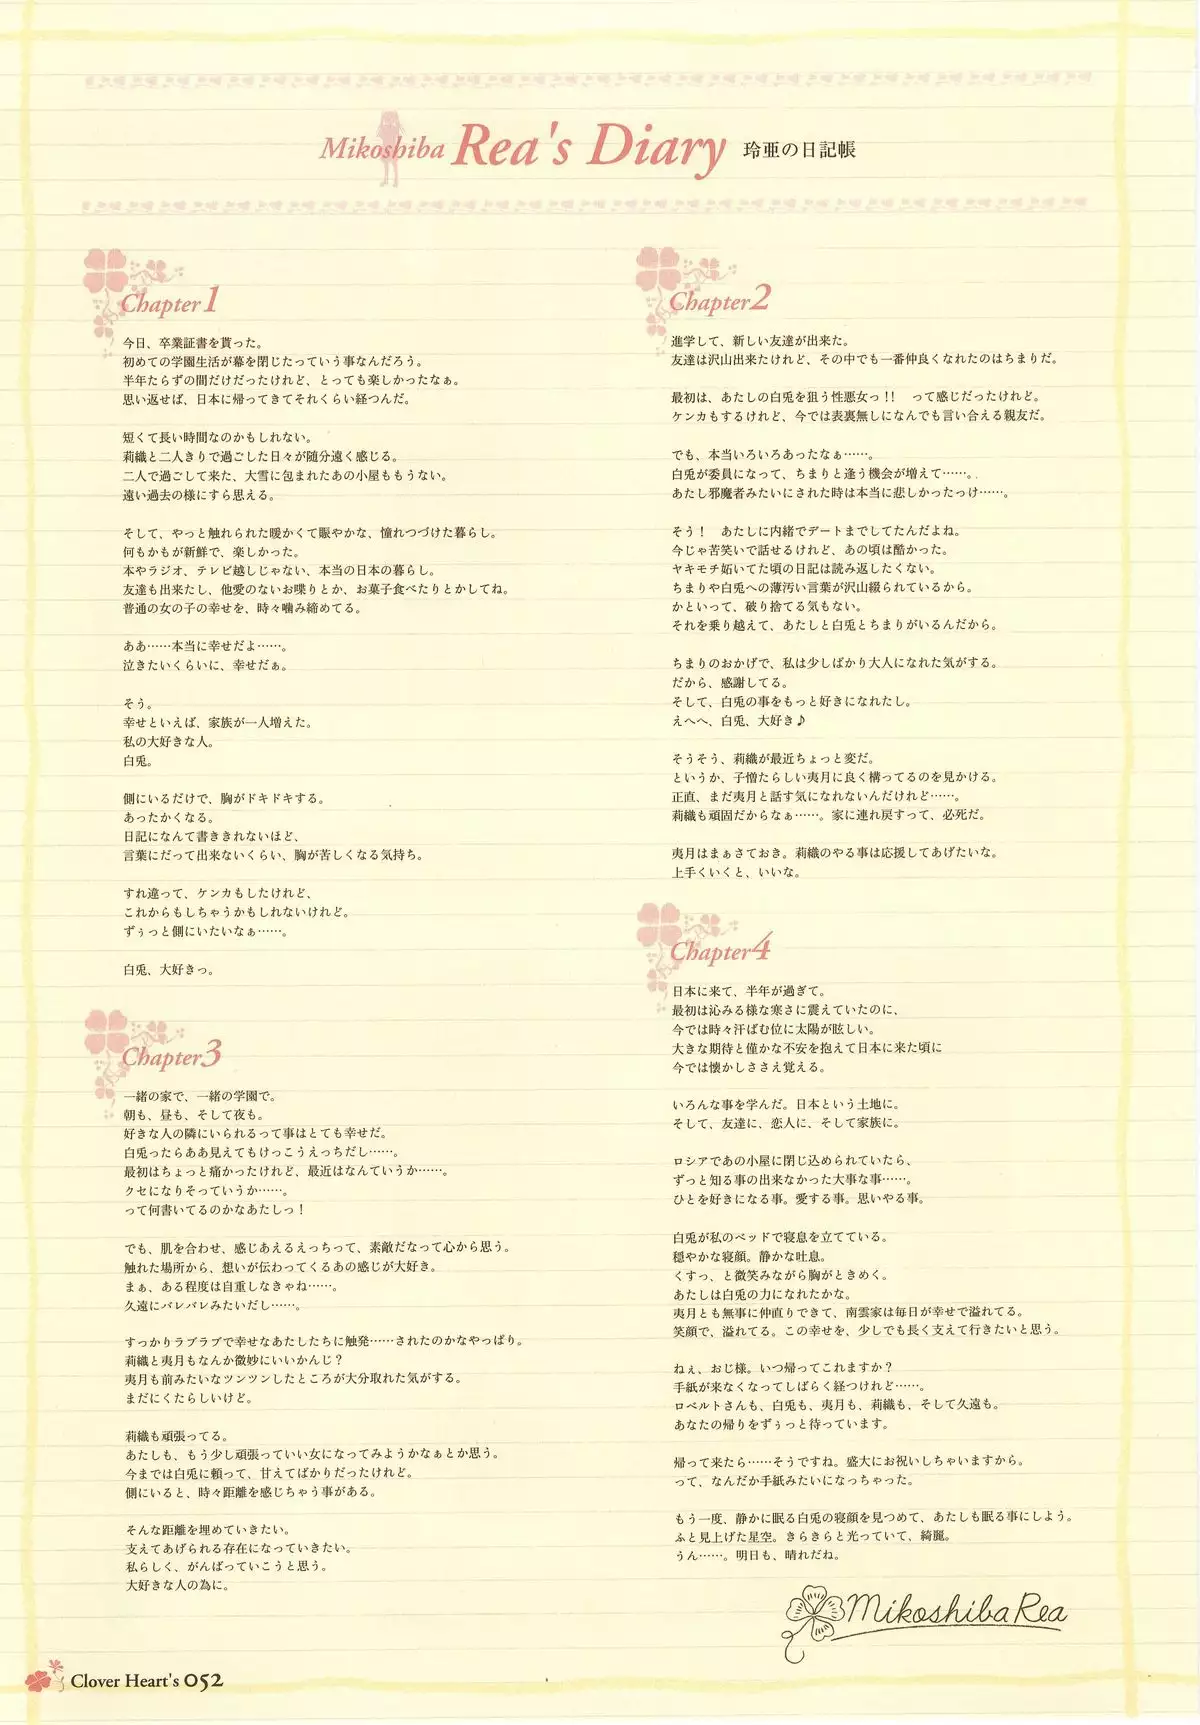 Mikoshiba Rea's Diary 玲亜の日記帳
Chapter1
今日、卒業証書を貰った。
初めての学園生活が幕を閉じたっていう事なんだろう。
半年たらずの間だけだったけれど、とっても楽しかったなぁ。
思い返せば、日本に帰ってきてそれくらい経つんだ。
短くて長い時間なのかもしれない。
莉織と二人きりで過ごした日々が随分遠く感じる。
二人で過ごして来た、大雪に包まれたあの小屋ももうない。
遠い過去の様にすら思える。
そして、やっと触れられた暖かくて賑やかな、憧れつづけた暮らし。
何もかもが新鮮で、楽しかった。
本やラジオ、テレビ越しじゃない、本当の日本の暮らし。
友達も出来たし、他愛のないお喋りとか、お菓子食べたりとかしてね。
普通の女の子の幸せを、時々噛み締めてる。
ああ……本当に幸せだよ……。
泣きたいくらいに、幸せだぁ。
そう。
幸せといえば、家族が一人増えた。
私の大好きな人。
白兎。
側にいるだけで、胸がドキドキする。
あったかくなる。
日記になんて書ききれないほど、
言葉にだって出来ないくらい、胸が苦しくなる気持ち。
すれ違って、ケンカもしたけれど、
これからもしちゃうかもしれないけれど。
ずぅっと側にいたいなぁ……。
白兎、大好きっ。
Chapter2
進学して、新しい友達が出来た。
友達は沢山出来たけれど、その中でも一番仲良くなれたのはちまりだ。
最初は、あたしの白兎を狙う性悪女っ!!　って感じだったけれど。
ケンカもするけれど、今では表裏無しになんでも言い合える親友だ。
でも、本当いろいろあったなぁ……。
白兎が委員になって、ちまりと逢う機会が増えて……。
あたし邪魔者みたいにされた時は本当に悲しかったっけ……。
そう！　あたしに内緒でデートまでしてたんだよね。
今じゃ苦笑いで話せるけれど、あの頃は酷かった。
ヤキモチ妬いてた頃の日記は読み返したくない。
ちまりや白兎への薄汚い言葉が沢山綴られているから。
かといって、破り捨てる気もない。
それを乗り越えて、あたしと白兎とちまりがいるんだから。
ちまりのおかげで、私は少しばかり大人になれた気がする。
だから、感謝してる。
そして、白兎の事をもっと好きになれたし。
えへへ、白兎、大好き♪
そうそう、莉織が最近ちょっと変だ。
というか、子憎たらしい夷月に良く構ってるのを見かける。
正直、まだ夷月と話す気になれないんだけれど……。
莉織も頑固だからなぁ……。家に連れ戻すって、必死だ。
夷月はまぁさておき。莉織のやる事は応援してあげたいな。
上手くいくと、いいな。
Chapter3
一緒の家で、一緒の学園で。
朝も、昼も、そして夜も。
好きな人の隣にいられるって事はとても幸せだ。
白兎ったらああ見えてもけっこうえっちだし……。
最初はちょっと痛かったけれど、最近はなんていうか……。
クセになりそっていうか……。
って何書いてるのかなあたしっ！
でも、肌を合わせ、感じあえるえっちって、素敵だなって心から思う。
触れた場所から、想いが伝わってくるあの感じが大好き。
まぁ、ある程度は自重しなきゃね……。
久遠にバレバレみたいだし……。
すっかりラブラブで幸せなあたしたちに触発……されたのかなやっぱり。
莉織と夷月もなんか微妙にいいかんじ？
夷月も前みたいなツンツンしたところが大分取れた気がする。
まだにくたらしいけど。
莉織も頑張ってる。
あたしも、もう少し頑張っていい女になってみようかなぁとか思う。
今までは白兎に頼って、甘えてばかりだったけれど。
側にいると、時々距離を感じちゃう事がある。
そんな距離を埋めていきたい。
支えてあげられる存在になっていきたい。
私らしく、がんばっていこうと思う。
大好きな人の為に。
Chapter4
日本に来て、半年が過ぎて。
最初は沁みる様な寒さに震えていたのに、
今では時々汗ばむ位に太陽が眩しい。
大きな期待と僅かな不安を抱えて日本に来た頃に
今では懐かしささえ覚える。
いろんな事を学んだ。日本という土地に。
そして、友達に、恋人に、そして家族に。
ロシアであの小屋に閉じ込められていたら、
ずっと知る事の出来なかった大事な事……。
ひとを好きになる事。愛する事。思いやる事。
白兎が私のベッドで寝息を立てている。
穏やかな寝顔。静かな吐息。
くすっ、と微笑みながら胸がときめく。
あたしは白兎の力になれたかな。
夷月とも無事に仲直りできて、南雲家は毎日が幸せで溢れてる。
笑顔で、溢れてる。この幸せを、少しでも長く支えて行きたいと思う。
ねぇ、おじ様。いつ帰ってこれますか？
手紙が来なくなってしばらく経つけれど……。
ロベルトさんも、白兎も、夷月も、莉織も、そして久遠も。
あなたの帰りをずぅっと待っています。
帰って来たら……そうですね。盛大にお祝いしちゃいますから。
って、なんだか手紙みたいになっちゃった。
もう一度、静かに眠る白兎の寝顔を見つめて、あたしも眠る事にしよう。
ふと見上げた星空。きらきらと光っていて、綺麗。
うん……。明日も、晴れだね。
Mikoshiba Rea
Clover Heart's 052